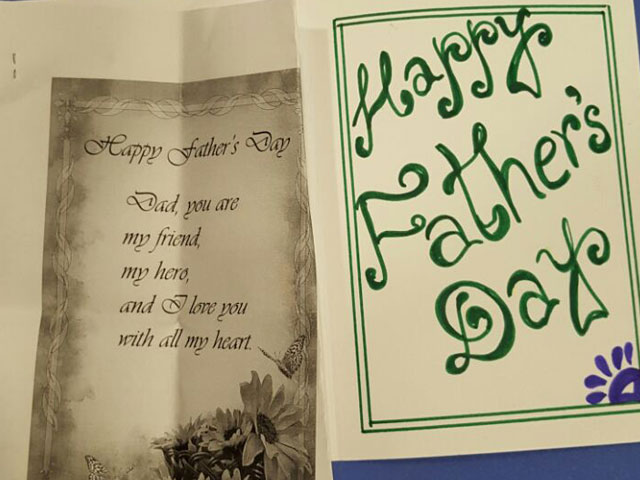 Happy Father's Day
Dad, you are
my friend,
my hero,
and I love you
with all my heart.
Happy
Father's
Day